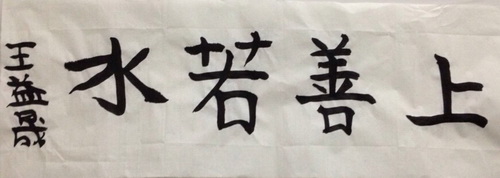 上善若水
王益晟